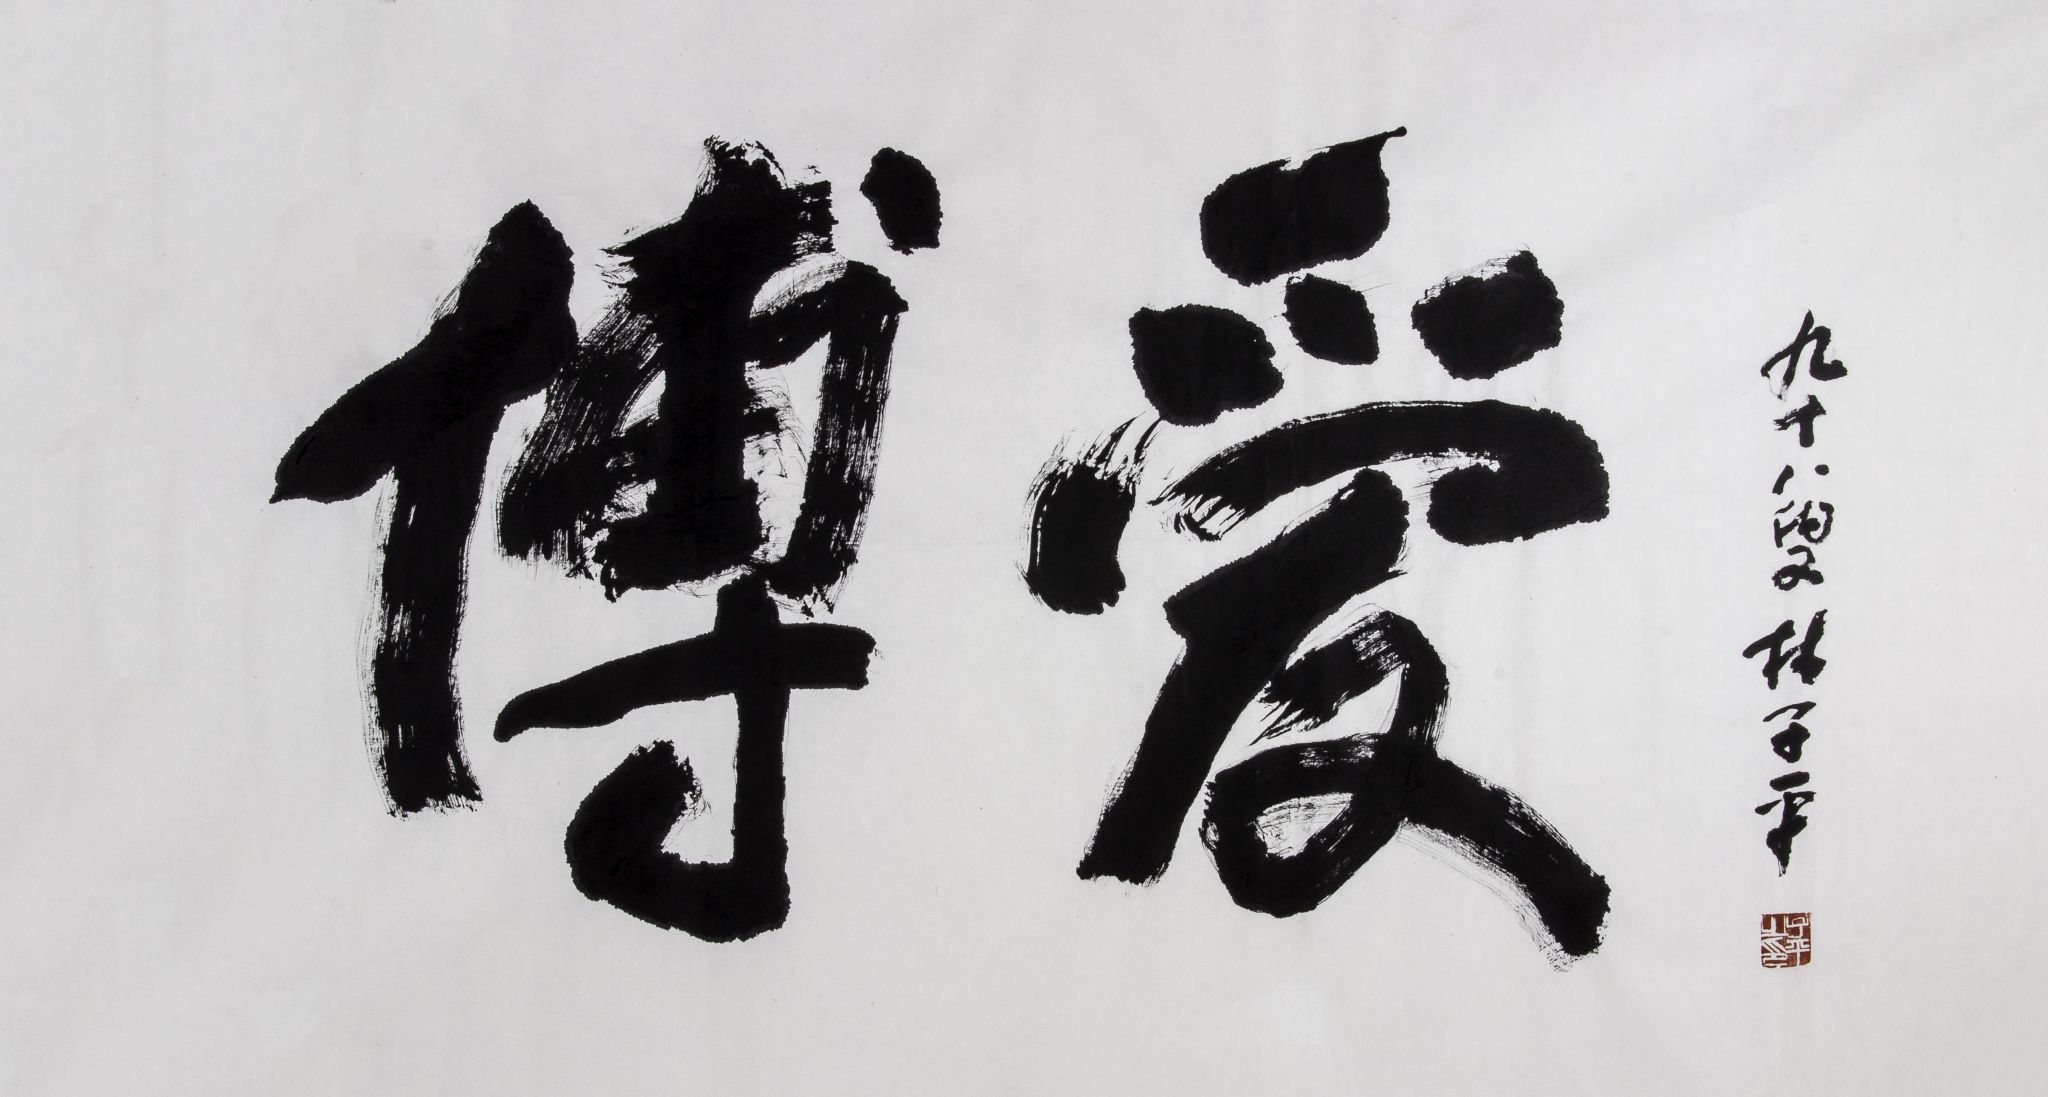 博爱
九十八叟 林子平